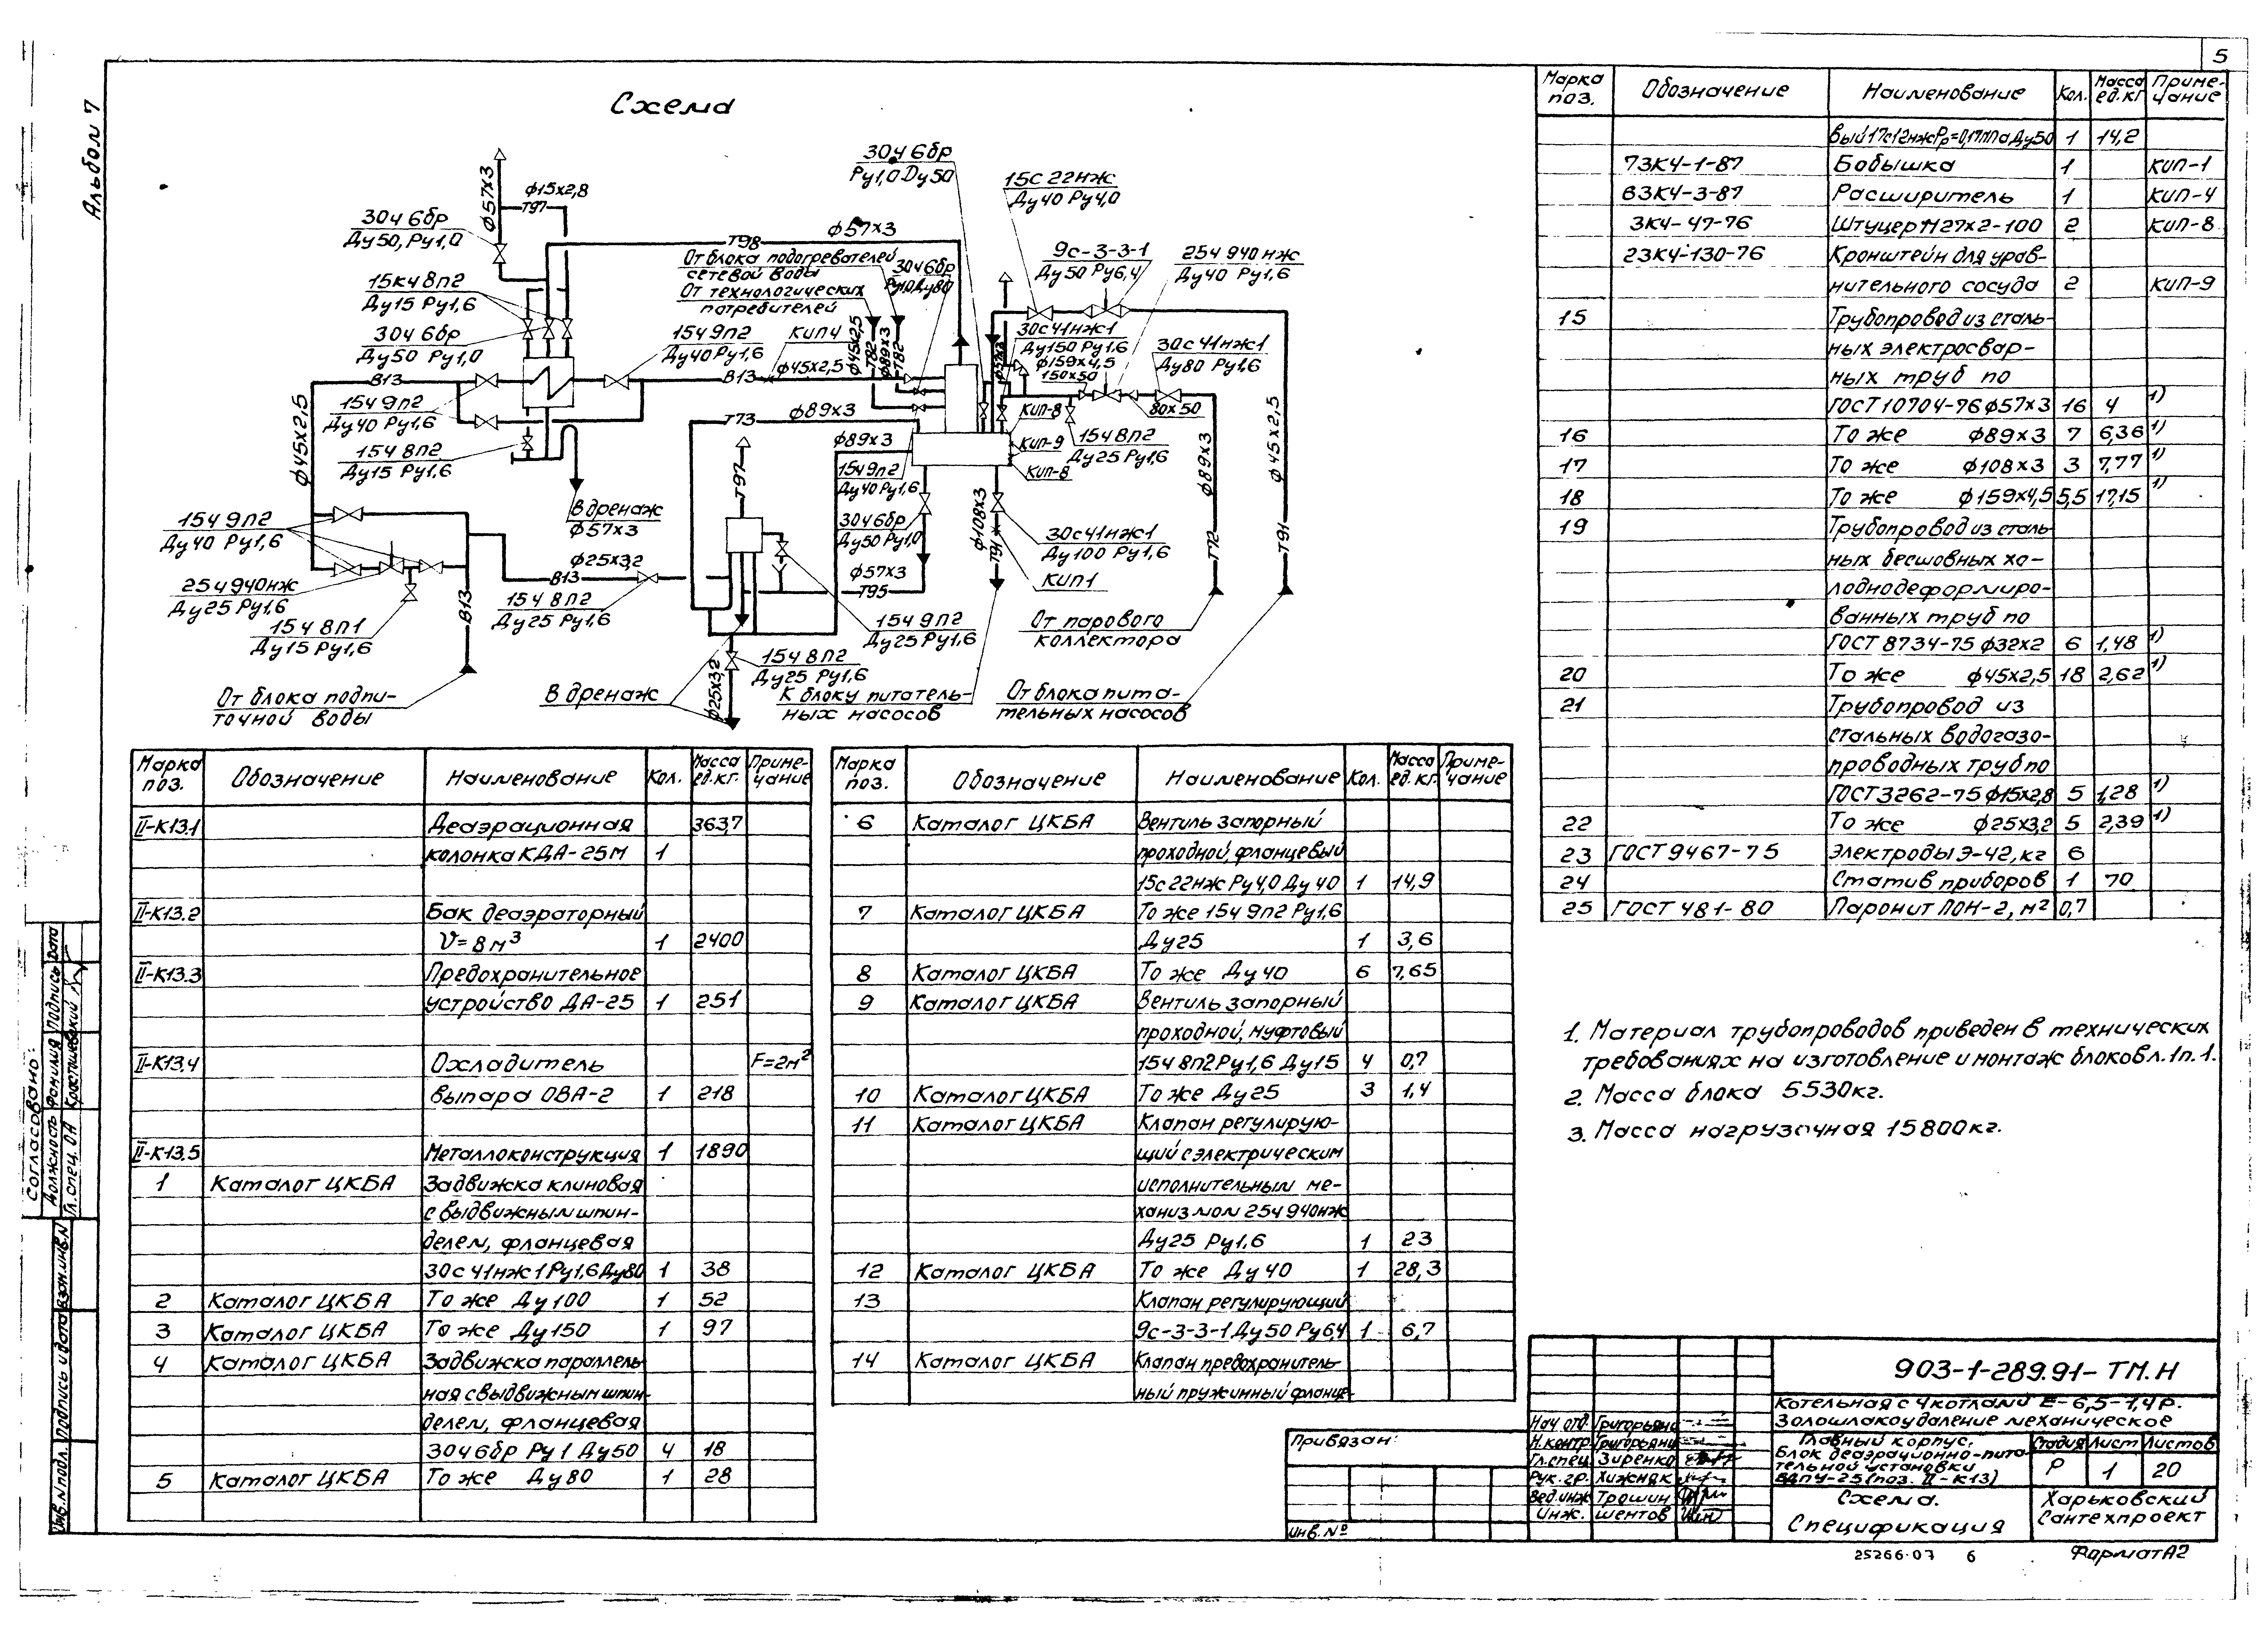 5
Альбом 7
Схема
ф57х3
ф15х2,8
Т97
30ч 6бр
Ду50, Ру1,0
15кч 8п2
Ду15 Ру1,6
30ч 6бр
Ду50 Ру1,0
В13
15ч 9п2
Ду40 Ру1,6
15ч 8п2
Ду15 Ру1,6
ф45х2,5
Т98
ф57х3
От блока подогревателей
сетевой воды
От технологических
потребителей
30ч 6бр
Ру1,0 Ду80
30ч 6бр
Ру1,0 Ду50
15с 22нж
Ду40 Ру4,0
9с-3-3-1
Ду50 Ру6,4
25ч 940нж
Ду40 Ру1,6
15ч 9п2
Ду40 Ру1,6
КИП4
В13
ф45х2,5
ф45х2,5
Т82
ф89х3
Т82
ф57х3
30с41нж1
Ду150 Ру1,6
ф159х4,5
150х50
30с41нж1
Ду80 Ру1,6
80х50
Т73
ф89х3
ф89х3
КИП-8
КИП-9
КИП-8
15ч 8п2
Ду25 Ру1,6
15ч 9п2
Ду40 Ру1,6
Т97
В дренаж
ф57х3
30ч 6бр
Ду50 Ру1,0
ф108х3
Т91
30с41нж1
Ду100 Ру1,6
КИП1
ф89х3
Т72
ф45х2,5
Т91
15ч 9п2
Ду40 Ру1,6
25ч 940нж
Ду25 Ру1,6
15ч 8п1
Ду15 Ру1,6
В13
ф25х3,2
В13
15ч 8п2
Ду25 Ру1,6
ф57х3
Т95
15ч 9п2
Ду25 Ру1,6
15ч 8п2
Ду25 Ру1,6
ф25х3,2
От блока подпи-
точной воды
В дренаж
К блоку питатель-
ных насосов
От парового
коллектора
От блока пита-
тельных насосов
Марка поз. Обозначение Наименование Кол. Масса ед.кг. Приме-чание
II-К13.1 Деаэрационная 3637
колонка КДА-25М 1
II-К13.2 Бак деаэраторный
V=8м³ 1 2400
II-К13.3 Предохранительное
устройство ДА-25 1 251
II-К13.4 Охладитель F=2м²
выпара ОВА-2 1 218
II-К13.5 Металлоконструкция 1 1890
1 Каталог ЦКБА Задвижка клиновая
с выдвижным шпин-
делем, фланцевая
30с 41нж1 Ру1,6 Ду80 1 38
2 Каталог ЦКБА То же Ду100 1 52
3 Каталог ЦКБА То же Ду150 1 97
4 Каталог ЦКБА Задвижка параллель
ная с выдвижным шпин-
делем, фланцевая
30ч 6бр Ру 1 Ду50 4 18
5 Каталог ЦКБА То же Ду80 1 28
Марка поз. Обозначение Наименование Кол. Масса ед.кг. Приме-чание
6 Каталог ЦКБА Вентиль запорный
проходной, фланцевый
15с 22нж Ру4,0 Ду 40 1 14,9
7 Каталог ЦКБА То же 15ч 9п2 Ру1,6
Ду25 1 3,6
8 Каталог ЦКБА То же Ду40 6 7,65
9 Каталог ЦКБА Вентиль запорный
проходной, муфтовый
15ч 8п2 Ру1,6 Ду15 4 0,7
10 Каталог ЦКБА То же Ду25 3 1,4
11 Каталог ЦКБА Клапан регулирую-
щий с электрическим
исполнительным ме-
ханизмом 25ч 940нж
Ду25 Ру1.6 1 23
12 Каталог ЦКБА То же Ду40 1 28,3
13 Клапан регулирующий
9с-3-3-1 Ду50 Ру6,4 1 6,7
14 Каталог ЦКБА Клапан предохранитель-
ный пружинный фланце-
Марка поз. Обозначение Наименование Кол. Масса ед.кг Приме-чание
вый 17с12нж Рр=0,17МПа Ду50 1 14,2
73К4-1-87 Бобышка 1 КИП-1
63К4-3-87 Расширитель 1 КИП-4
3К4-47-76 Штуцер М27х2-100 2 КИП-8
23К4-130-76 Кронштейн для урав-
нительного сосуда 2 КИП-9
15 Трубопровод из сталь-
ных электросвар-
ных труб по
ГОСТ 10704-76 ф57х3 16 4 1)
16 То же ф89х3 7 6,36 1)
17 То же ф108х3 3 7,77 1)
18 То же ф159х4,5 5,5 17,15 1)
19 Трубопровод из сталь
ных бесшовных хо-
лоднодеформиро-
ванных труб по
ГОСТ 8734-75 ф32х2 6 1,48 1)
20 То же ф45х2,5 18 2,62 1)
21 Трубопровод из
стальных водогазо-
проводных труб по
ГОСТ 3262-75 ф15х2,8 5 1,28 1)
22 То же ф25х3,2 5 2,39 1)
23 ГОСТ 9467-75 Электроды Э-42, кг 6
24 Статив приборов 1 70
25 ГОСТ 481-80 Паронит ПОН-2, м² 0,7
1. Материал трубопроводов приведен в технических
требованиях на изготовление и монтаж блоков л.1 п.1.
2. Масса блока 5530кг.
3. Масса нагрузочная 15800кг.
Согласовано:
Должность Фамилия Подпись Дата
Гл.спец. ОА Крастишевский
Взам.инв.N
Подпись и дата
Инв.N подл.
Привязан:
Инв. №
903-1-289.91-ТМ.Н
Котельная с 4 котлами Е-6,5-1,4р.
Золошлакоудаление механическое
Нач отд. Григорьянц
Н.контр. Григорьянц
Гл.спец. Зиренко
Рук. гр. Хижняк
Вед.инж Трошин
Инж. Шентов
Главный корпус.
Блок деаэрационно-пита-
тельной установки
БДПУ-25 (поз. II-К13)
Стадия Лист Листов
Р 1 20
Схема.
Спецификация
Харьковский
Сантехпроект
25266-07 6
Формат А2